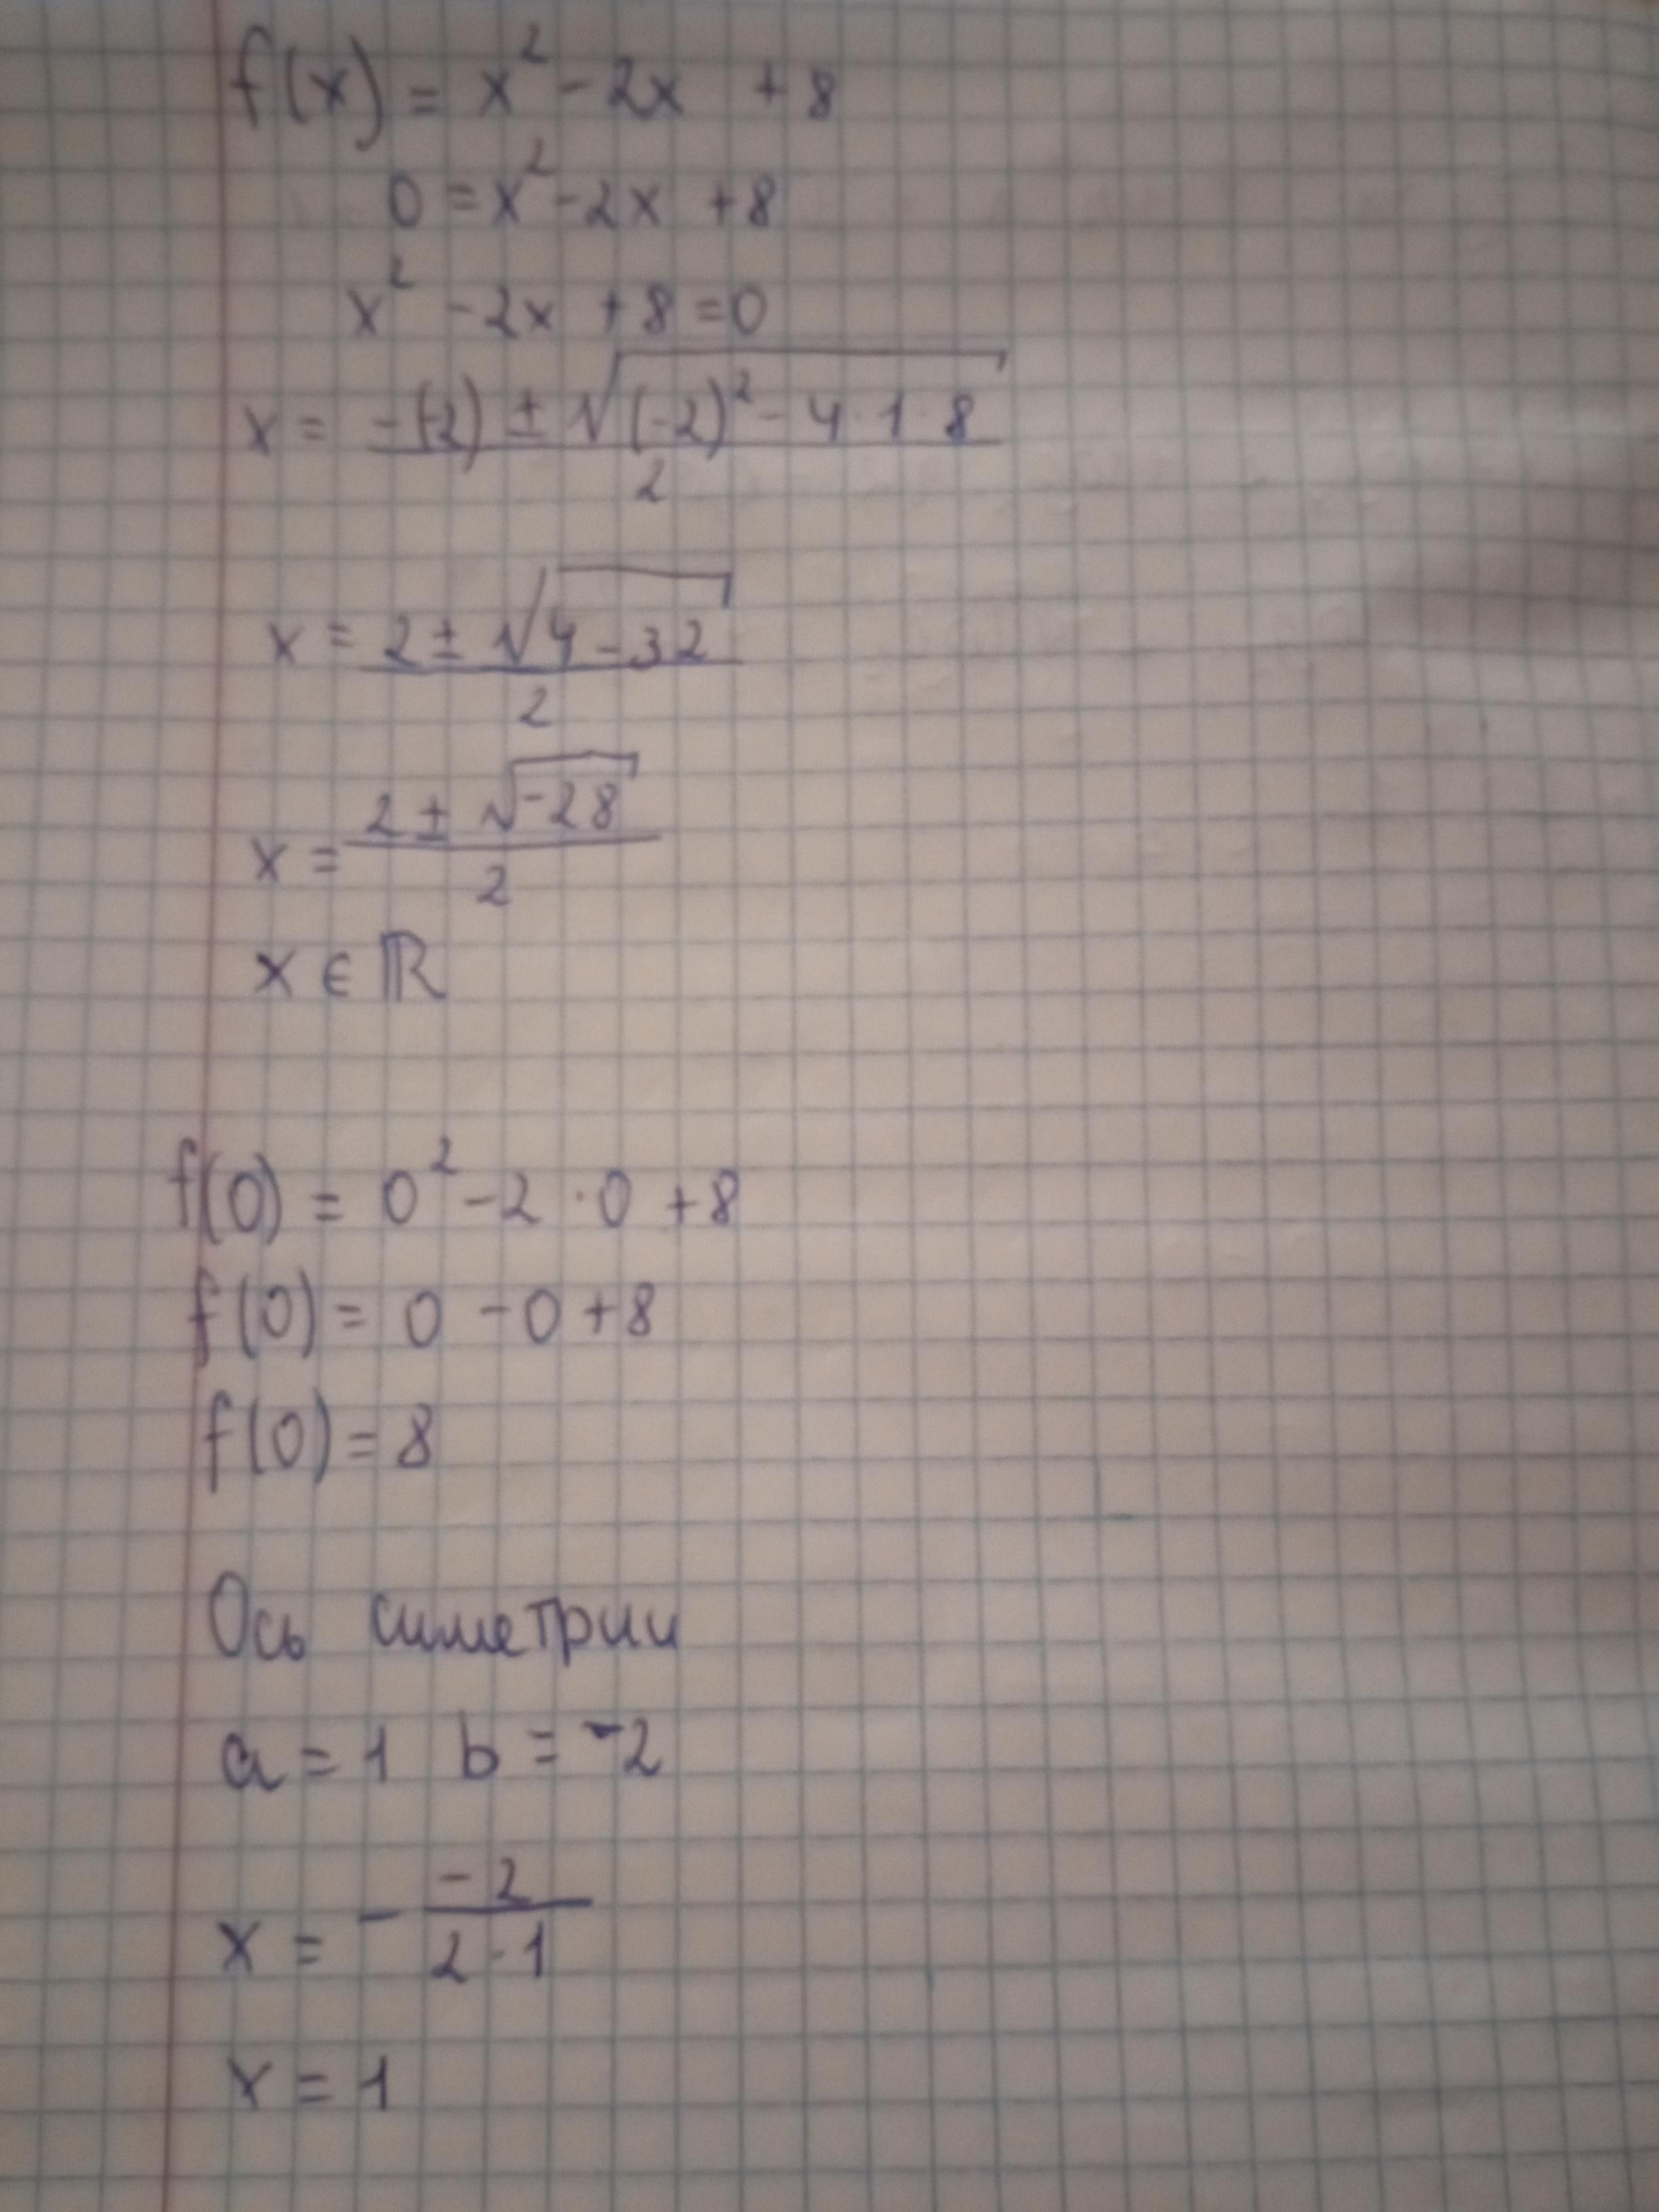 f(x) = x² - 2x + 8
0 = x² - 2x + 8
x² - 2x + 8 = 0
x = (-(-2) ± √((-2)² - 4 · 1 · 8)) / 2
x = (2 ± √(4 - 32)) / 2
x = (2 ± √(-28)) / 2
x ∈ ℝ
f(0) = 0² - 2 · 0 + 8
f(0) = 0 - 0 + 8
f(0) = 8
Ось симетрии
a = 1 b = -2
x = - (-2) / (2 · 1)
x = 1